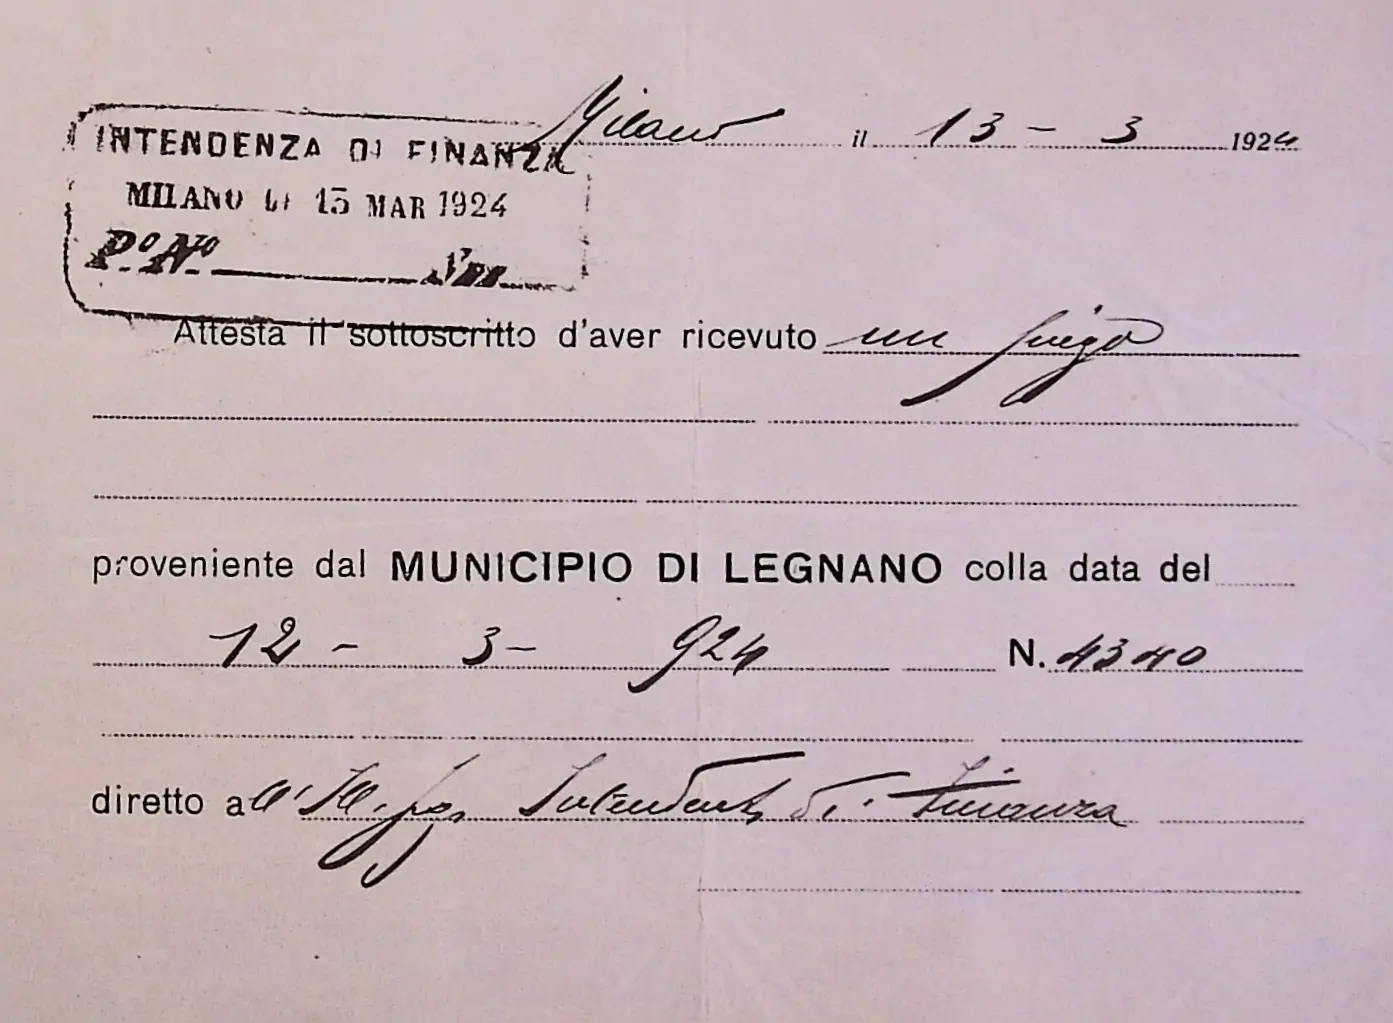 Milano il 13 - 3 1924
INTENDENZA DI FINANZA
MILANO LI 13 MAR 1924
P.º N.º
Attesta il sottoscritto d'aver ricevuto un piego
proveniente dal MUNICIPIO DI LEGNANO colla data del
12 - 3 - 924 N. 4340
diretto all' Ill. Sig. Intendente di Finanza